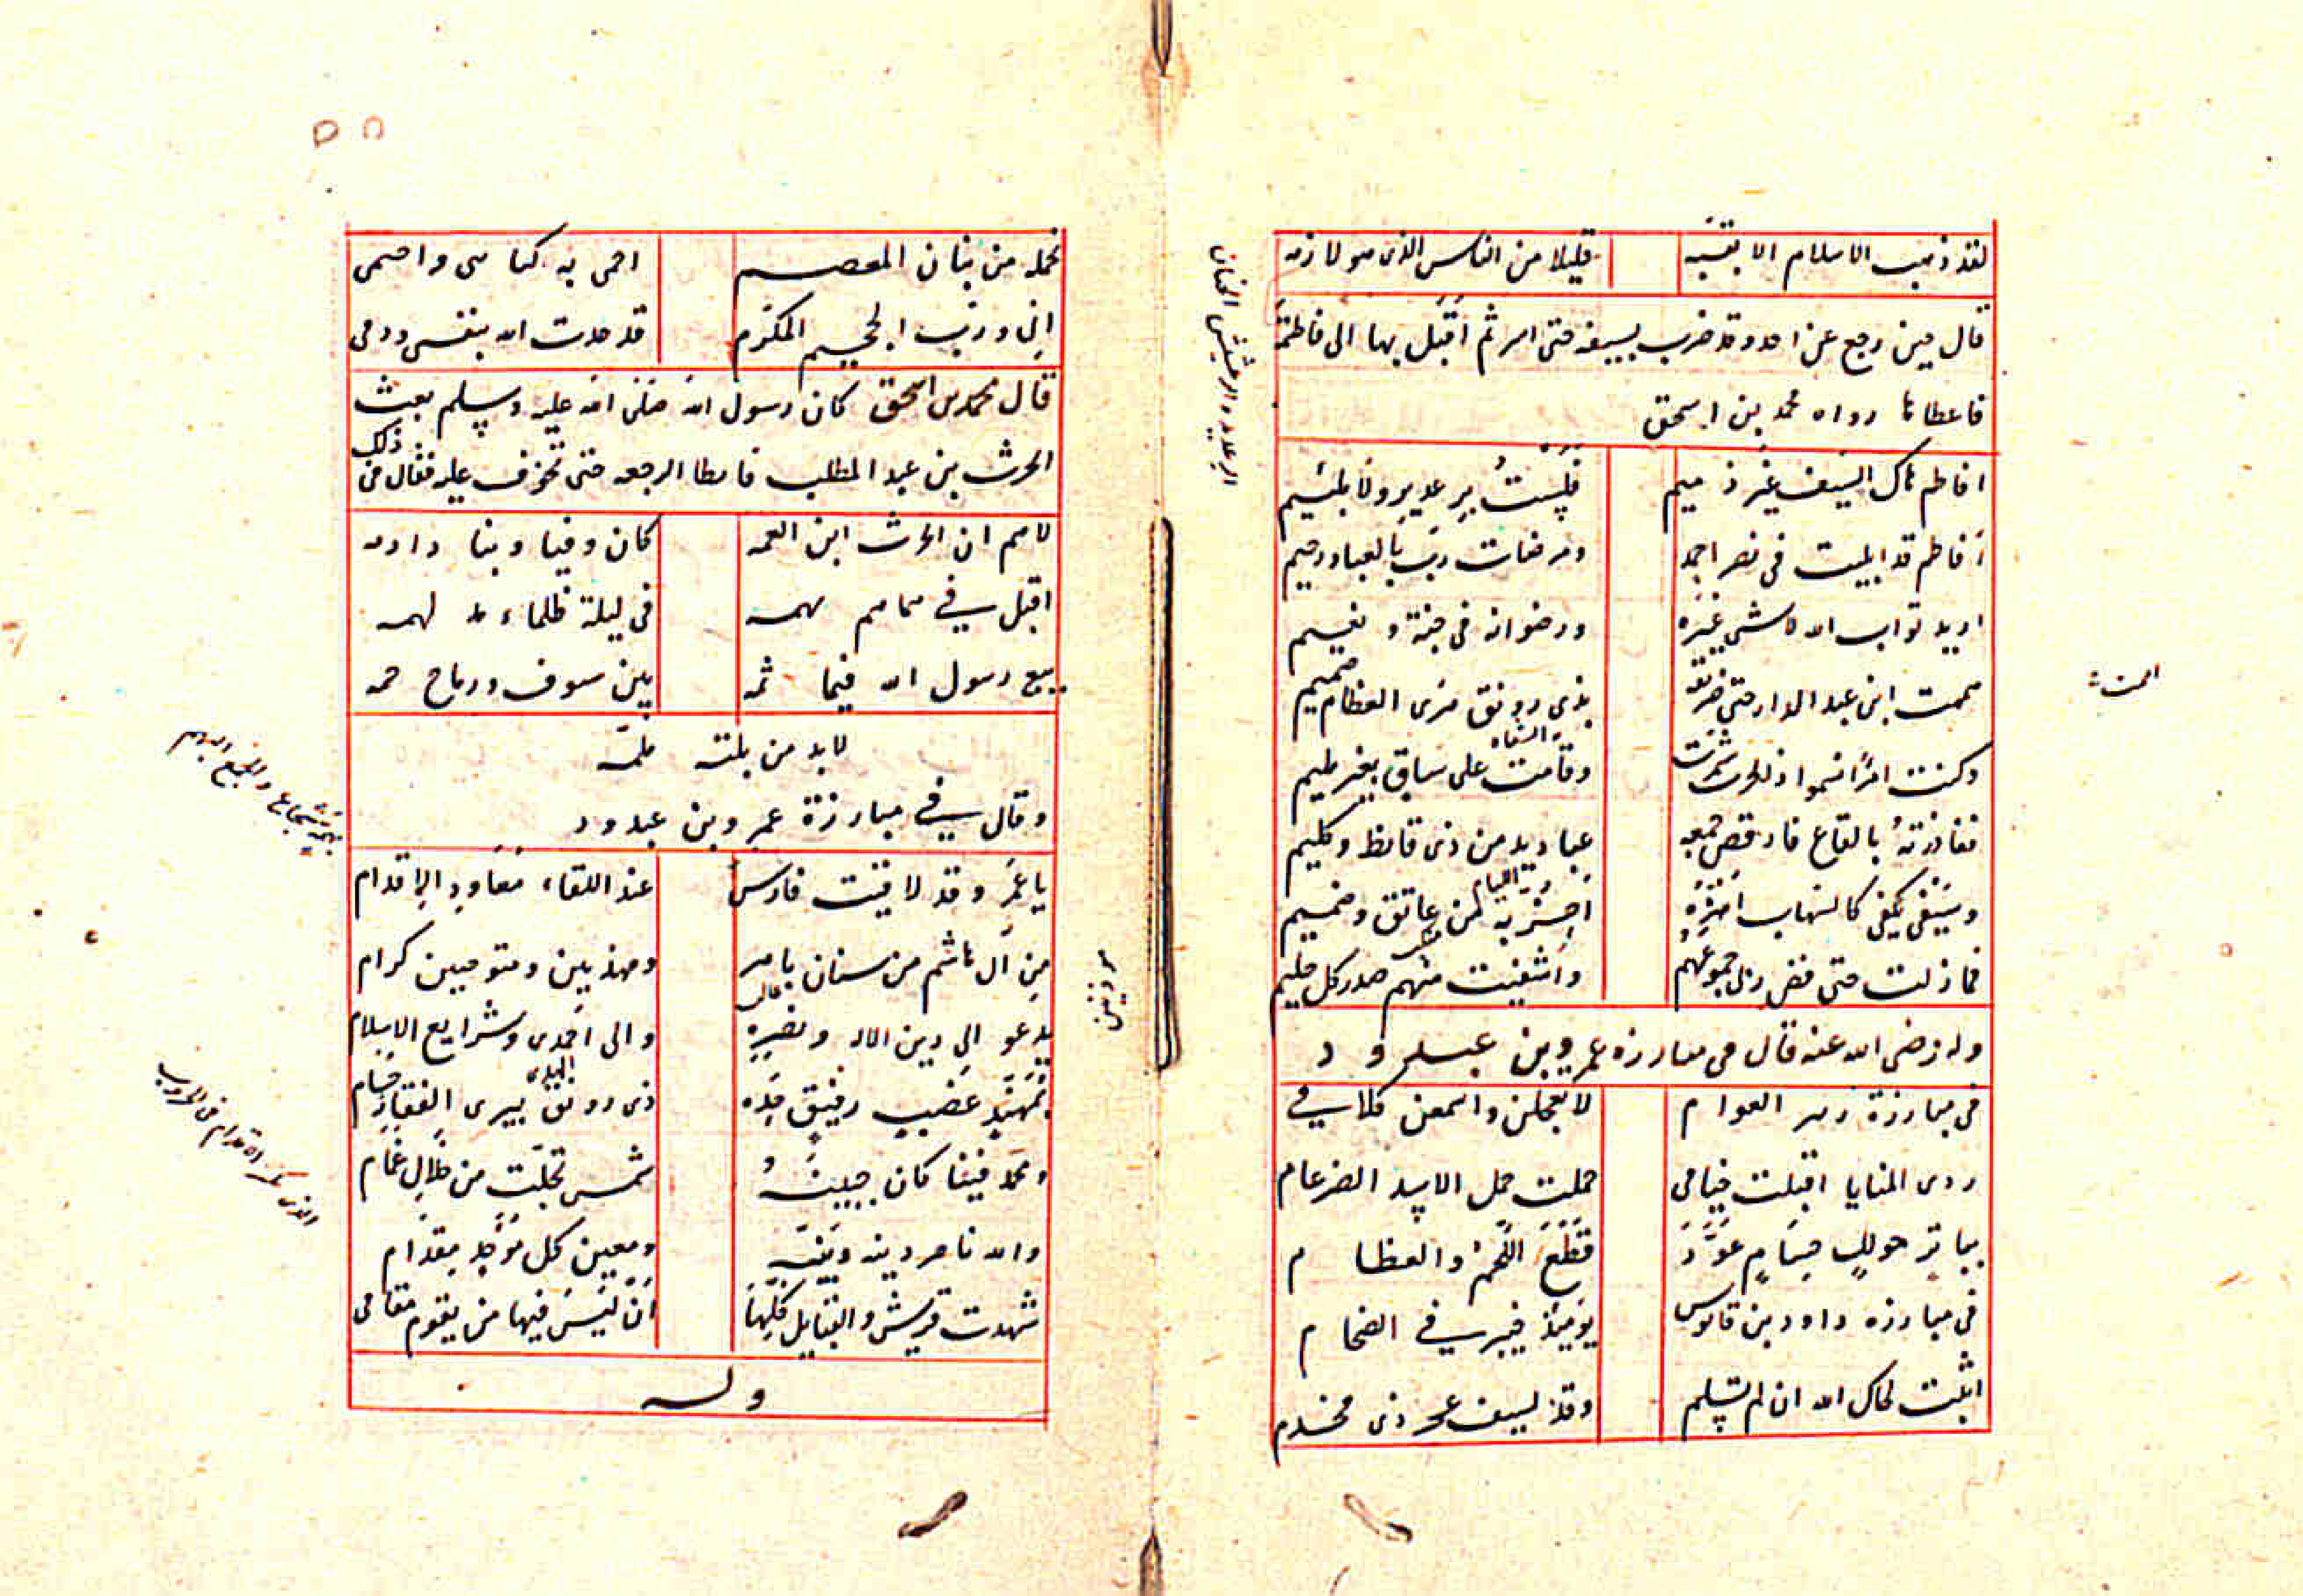 لقد ذهب الاسلام الا بقية قليلا من الناس الذى هو لازمه
قال حين رجع عن احد وقد ضرب بسيفه حتى احمر ثم اقبل بها الى فاطمة
فاعطاها رواه محمد بن اسحق
افاطم هاك السيف غير ذميم فلست برعديد ولا بلئيم
افاطم قد ابليت فى نصر احمد ومرضات رب بالعباد رحيم
اريد ثواب الله لا شى غيره ورضوانه فى جنة ونعيم
اممت ابن عبد الدار حتى ضربته بذى رونق يفرى العظام صميم
وكنت امرًا يسموا اذ الحرب شمرت وقامت على ساق بغير مليم
فغادرته بالقاع فارفض جمعه عباديد من ذى قانط وكليم
وسيفى بكفى كالشهاب اهزه اجز به من عاتق وصميم
فما زلت حتى فض ربى جموعهم واشفيت منهم صدر كل حليم
وله رضى الله عنه قال فى مبارزة عمرو بن عبد ود
فى مبارزة زبير العوام لا تعجلن واسمعن كلامى
ردى المنايا اقبلت خيامى حملت حمل الاسد الضرغام
بباتر حسام قطع اللحم والعظام
فى مبارزه داود بن قابوس يومئذ خيبرى فى الضخام
اثبت لحاك الله ان لم تسلم وقد بسيف عجر ذى مخذم
تحمله من بنان المعصم احمى به كتائبى واحتمى
انى ورب الحجر المكرم قد جدت الله بنفسى ودمى
قال محمد بن اسحق كان رسول الله صلى الله عليه وسلم بعث
الحرث بن عبد المطلب فابطا الرجعه حتى تخوف عليه فقال فى ذلك
لاهم ان الحرث ابن الصمه كان وفيا وبنا ذا ذمه
اقبل فى مهامه مهمه فى ليلة ظلماء مد لهمه
يبغى رسول الله فيما ثمه بين سيوف ورماح جمه
لا بد من بلية ملمه
وقال فى مبارزة عمرو بن عبد ود
يا عمرو قد لاقيت فارس عند اللقاء معاود الاقدام
من آل هاشم من سنان باهر ومهذبين ومتوجين كرام
يدعو الى دين الاله ونصره والى الهدى وشرايع الاسلام
بمهند عضب رقيق حده ذى رونق يبرى الفقار حسام
ومحمد فينا كان جبينه شمس تجلت من خلال غمام
والله ناصر دينه ونبيه ومعين كل موحد مقدام
شهدت قريش والقبايل كلها ان ليس فيها من يقوم مقامى
وله